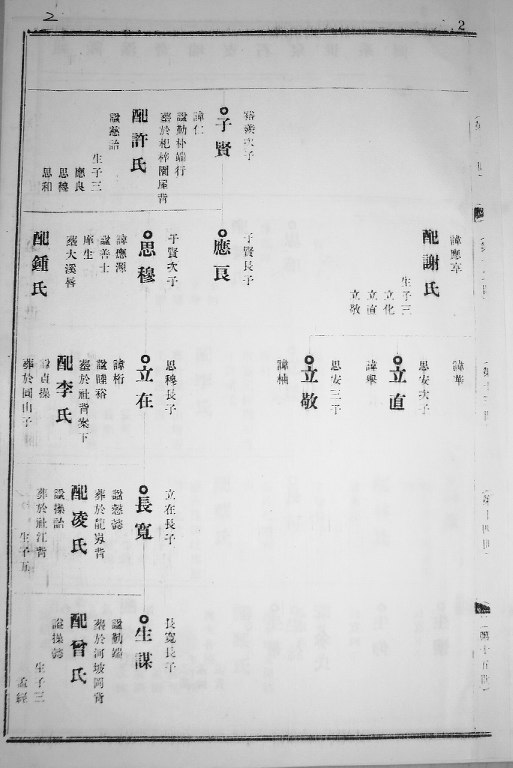 2
2
裕榮次子
子賢
諱仁
諡勤朴端行
葬於杞梓園屋背
配許氏
諡慈詒
生子三
應良
思穆
思和
諱應卒
配謝氏
生子三
立化
立直
立敬
子賢長子
應良
子賢次子
思穆
諱應源
諡善士
庠生
葬大溪唇
配鍾氏
諱華
思安次子
立直
諱舉
思安三子
立敬
諱柚
思穆長子
立在
諱桁
葬於社背案下
配李氏
諡貞操
葬於岡山子
立在長子
長寬
諡慈懿
葬於龍歸背
配凌氏
諡操詒
葬於社江背
長寬長子
生謀
諡勤端
葬於河坡岡背
配曾氏
諡操懿
生子三